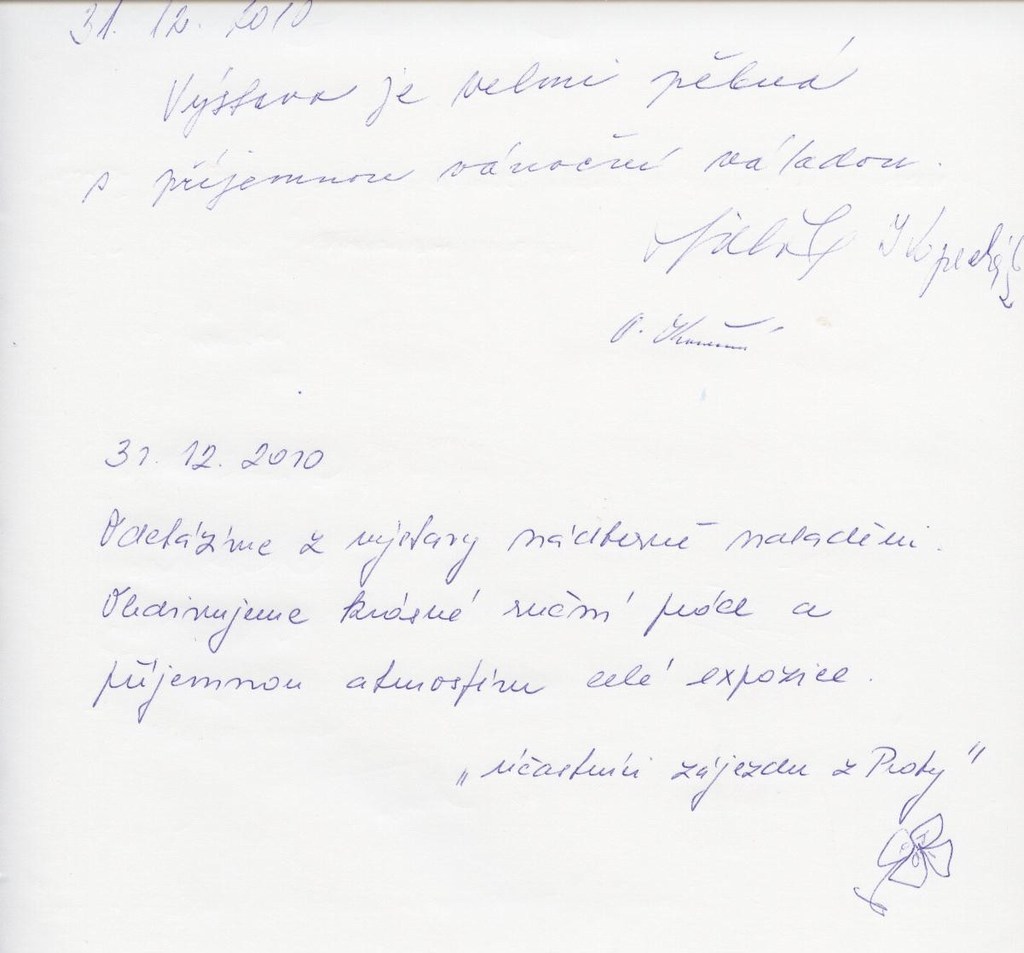 31. 12. 2010
Výstava je velmi pěkná
s příjemnou vánoční náladou.
I Kopecký
31. 12. 2010
Odcházíme z výstavy nádherně naladěni.
Obdivujeme krásné ruční práce a
příjemnou atmosféru celé expozice.
„účastníci zájezdu z Prahy"